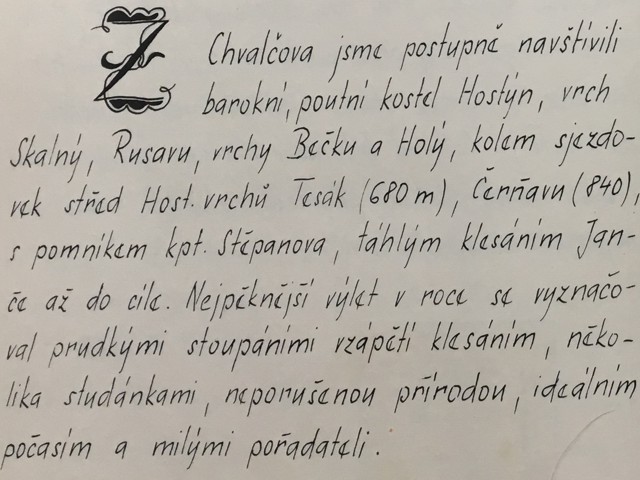 Z Chvalčova jsme postupně navštívili
barokní, poutní kostel Hostýn, vrch
Skalný, Rusavu, vrchy Bečku a Holý, kolem sjezdo-
vek střed Host. vrchů Tesák (680 m), Čerňavu (840),
s pomníkem kpt. Stěpanova, táhlým klesáním Jan-
če až do cíle. Nejpěknější výlet v roce se vyznačo-
val prudkými stoupáními vzápětí klesáním, něko-
lika studánkami, neporušenou přírodou, ideálním
počasím a milými pořadateli.